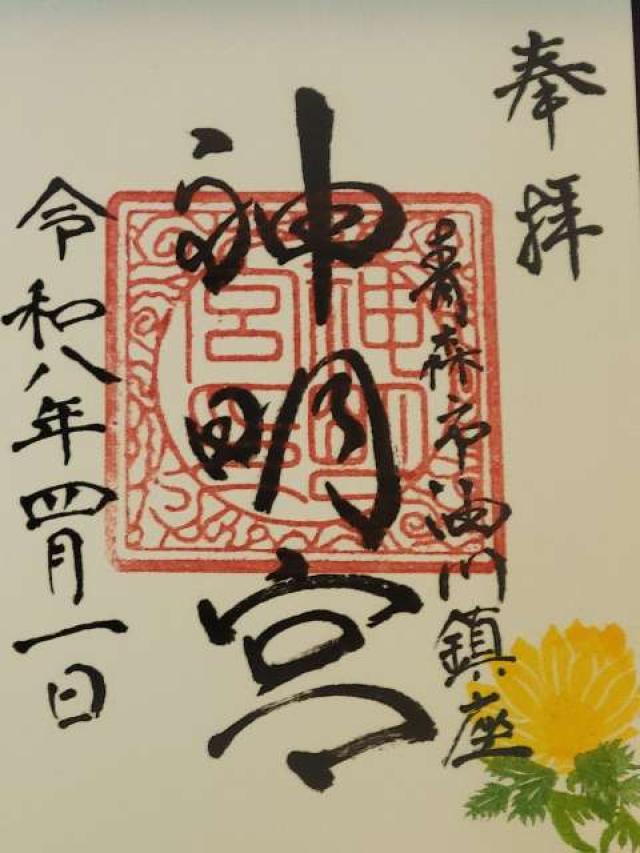 奉拝
青森市油川鎮座
神明宮
令和八年四月一日